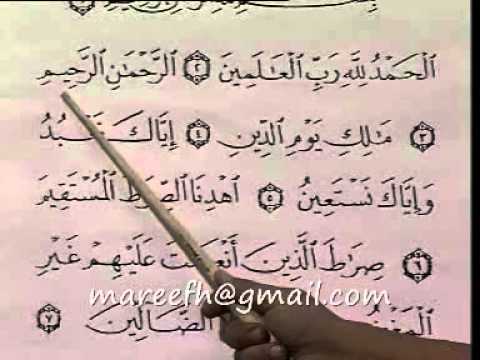 ٱلْحَمْدُ لِلَّهِ رَبِّ ٱلْعَـٰلَمِينَ ٢ ٱلرَّحْمَـٰنِ ٱلرَّحِيمِ
٣ مَـٰلِكِ يَوْمِ ٱلدِّينِ ٤ إِيَّاكَ نَعْبُدُ
وَإِيَّاكَ نَسْتَعِينُ ٥ ٱهْدِنَا ٱلصِّرَٰطَ ٱلْمُسْتَقِيمَ
٦ صِرَٰطَ ٱلَّذِينَ أَنْعَمْتَ عَلَيْهِمْ غَيْرِ
mareefh@gmail.com
ٱلضَّآلِّينَ ٧